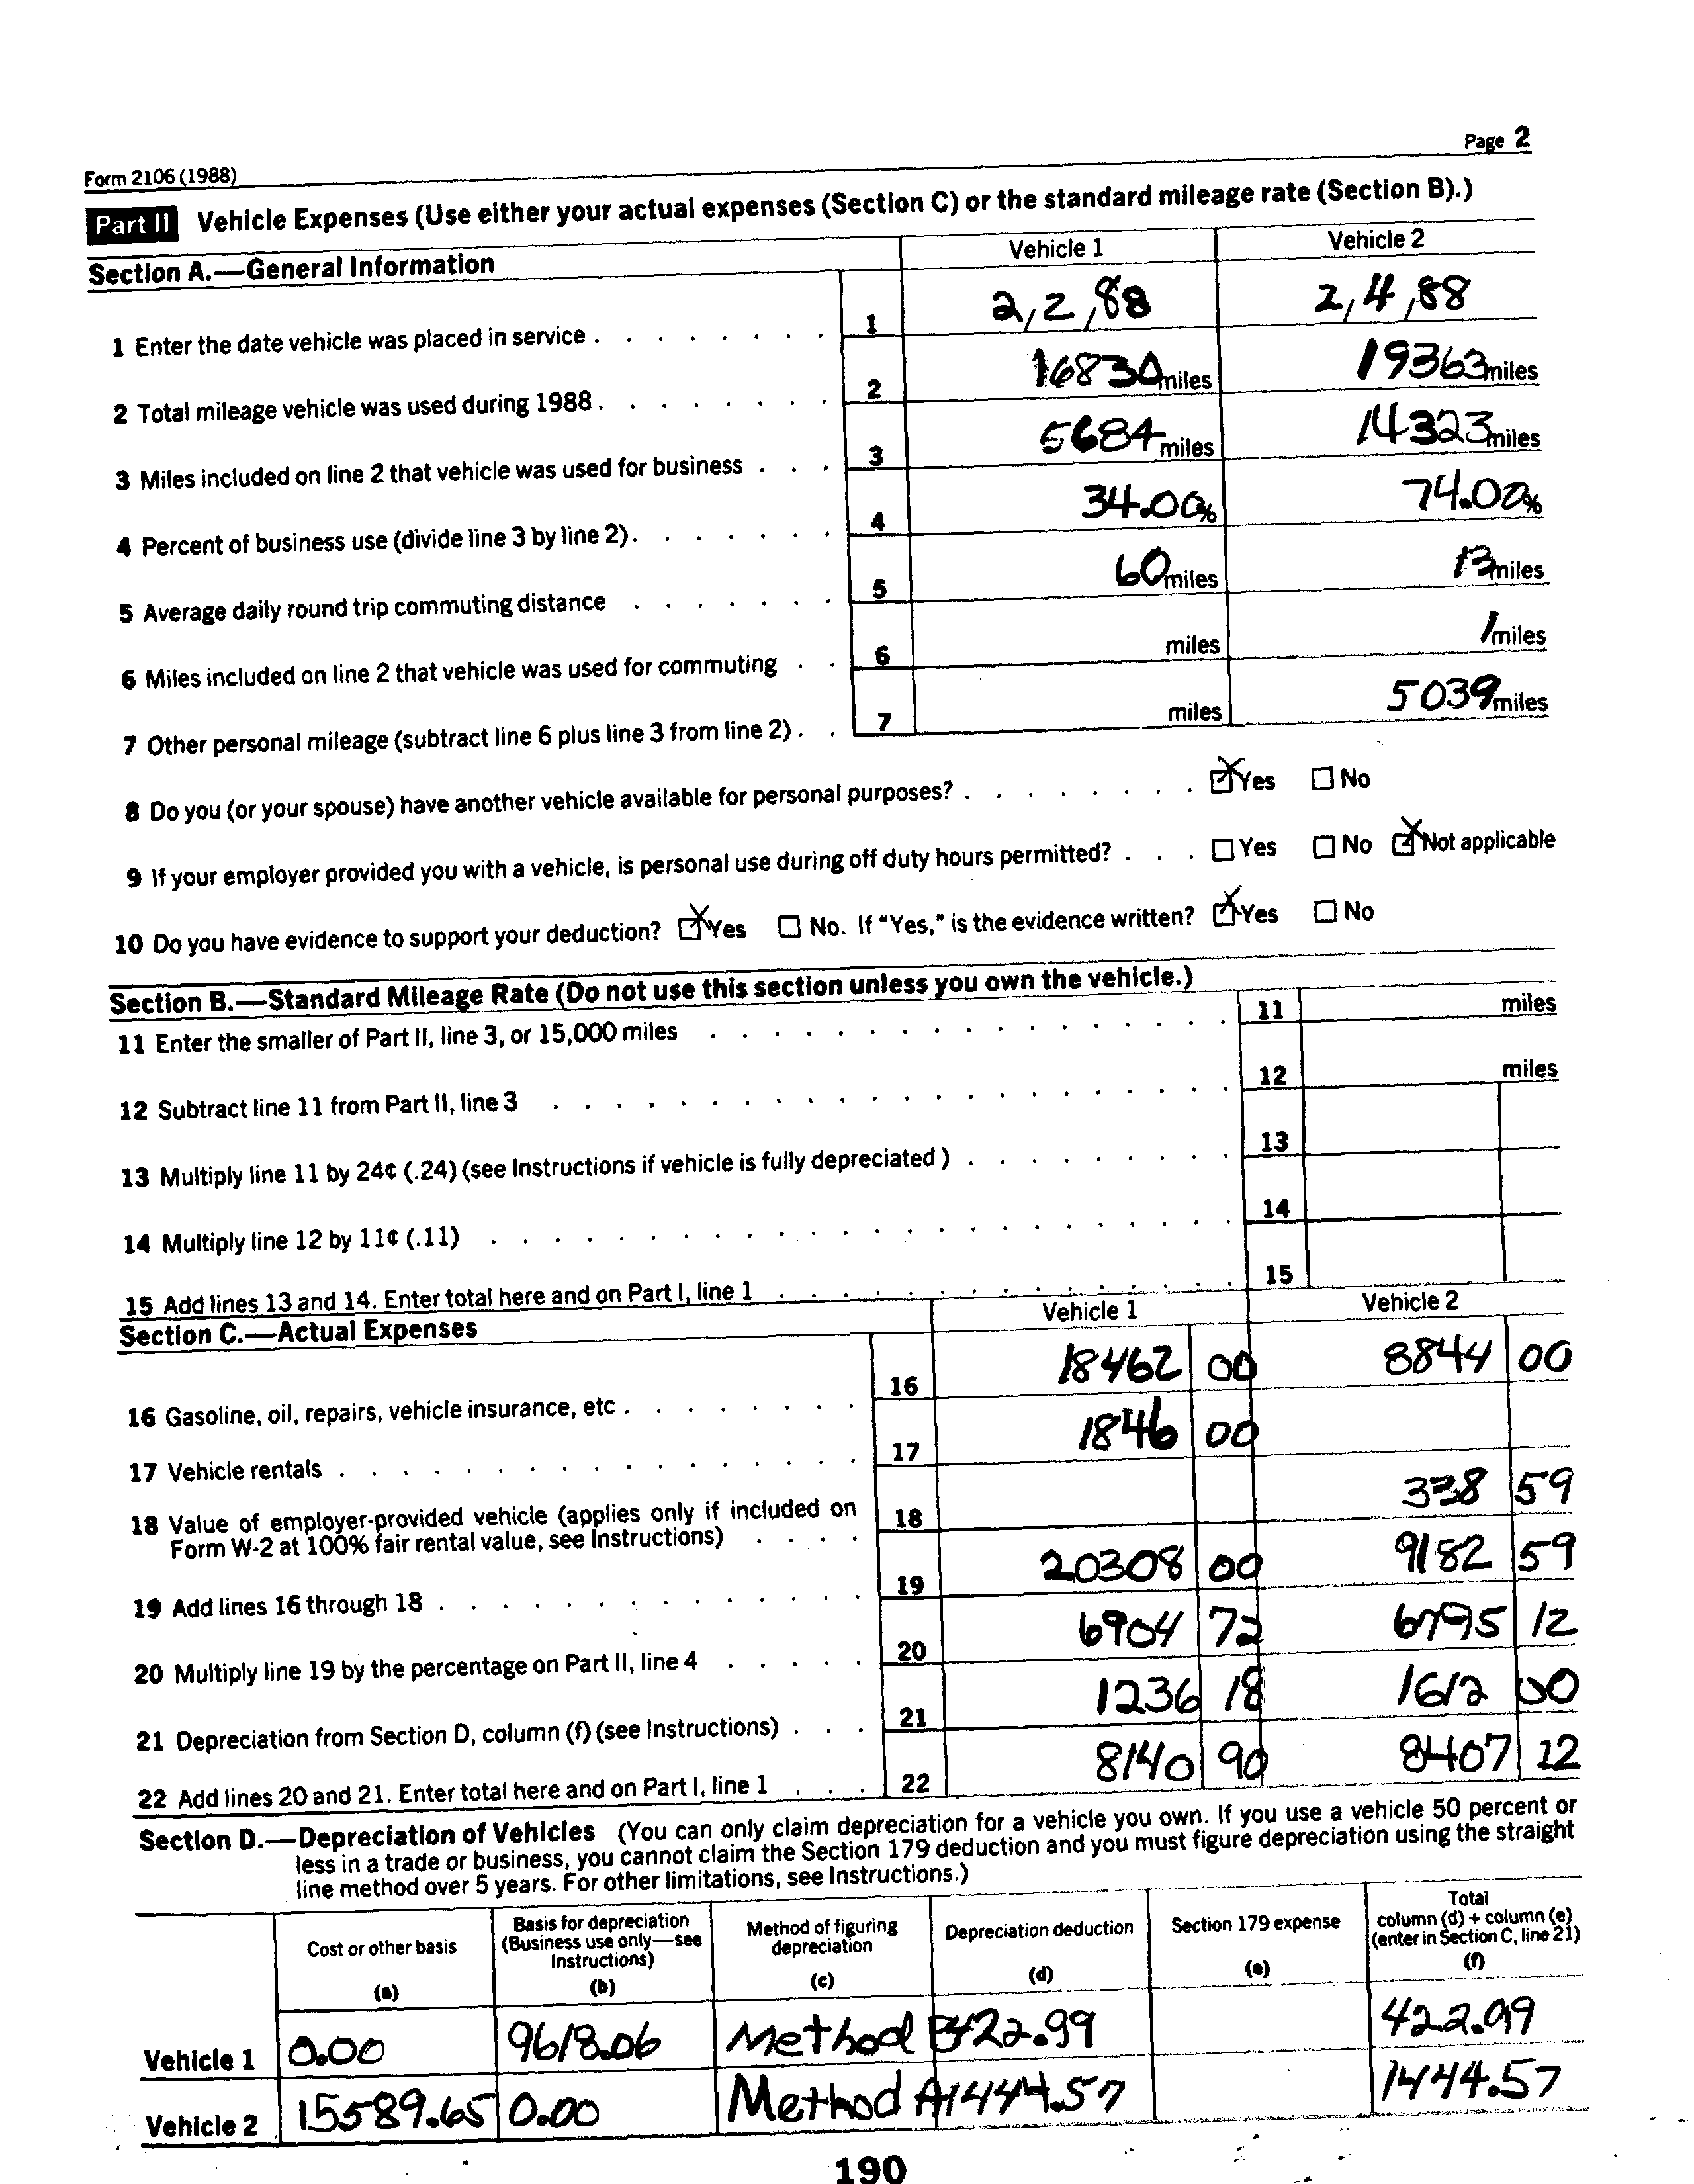 Form 2106 (1988)
Page 2
Part II Vehicle Expenses (Use either your actual expenses (Section C) or the standard mileage rate (Section B).)
Section A.—General Information Vehicle 1 Vehicle 2
1 Enter the date vehicle was placed in service . . . . . . . . 1 2,2,88 2,4,88
2 Total mileage vehicle was used during 1988 . . . . . . . . 2 16830 miles 19363 miles
3 Miles included on line 2 that vehicle was used for business . . . 3 5684 miles 14323 miles
4 Percent of business use (divide line 3 by line 2) . . . . . . . 4 34.00% 74.00%
5 Average daily round trip commuting distance . . . . . . . 5 60 miles 13 miles
6 Miles included on line 2 that vehicle was used for commuting . . 6 miles 1 miles
7 Other personal mileage (subtract line 6 plus line 3 from line 2) . . 7 miles 5039 miles
8 Do you (or your spouse) have another vehicle available for personal purposes? . . . . . . . . Yes No
9 If your employer provided you with a vehicle, is personal use during off duty hours permitted? . . . Yes No Not applicable
10 Do you have evidence to support your deduction? Yes No. If "Yes," is the evidence written? Yes No
Section B.—Standard Mileage Rate (Do not use this section unless you own the vehicle.)
11 Enter the smaller of Part II, line 3, or 15,000 miles . . . . . . . . . . . . . . . . . 11 miles
12 Subtract line 11 from Part II, line 3 . . . . . . . . . . . . . . . . . . . . . . 12 miles
13 Multiply line 11 by 24¢ (.24) (see Instructions if vehicle is fully depreciated) . . . . . . . . . 13
14 Multiply line 12 by 11¢ (.11) . . . . . . . . . . . . . . . . . . . . . . . . 14
15 Add lines 13 and 14. Enter total here and on Part I, line 1 . . . . . . . . . . . . . . . 15
Section C.—Actual Expenses Vehicle 1 Vehicle 2
16 Gasoline, oil, repairs, vehicle insurance, etc . . . . . . . . 16 18462 00 8844 00
17 Vehicle rentals . . . . . . . . . . . . . . . . . 17 1846 00
18 Value of employer-provided vehicle (applies only if included on
Form W-2 at 100% fair rental value, see Instructions) . . . . 18 338 59
19 Add lines 16 through 18 . . . . . . . . . . . . . . 19 20308 00 9182 59
20 Multiply line 19 by the percentage on Part II, line 4 . . . . . 20 6904 72 6795 12
21 Depreciation from Section D, column (f) (see Instructions) . . . 21 1236 18 1612 00
22 Add lines 20 and 21. Enter total here and on Part I, line 1 . . . 22 8140 90 8407 12
Section D.—Depreciation of Vehicles (You can only claim depreciation for a vehicle you own. If you use a vehicle 50 percent or
less in a trade or business, you cannot claim the Section 179 deduction and you must figure depreciation using the straight
line method over 5 years. For other limitations, see Instructions.)
Cost or other basis (a) Basis for depreciation (Business use only—see Instructions) (b) Method of figuring depreciation (c) Depreciation deduction (d) Section 179 expense (e) Total column (d) + column (e) (enter in Section C, line 21) (f)
Vehicle 1 0.00 9618.06 Method B 422.99 422.99
Vehicle 2 15589.65 0.00 Method A 1444.57 1444.57
190